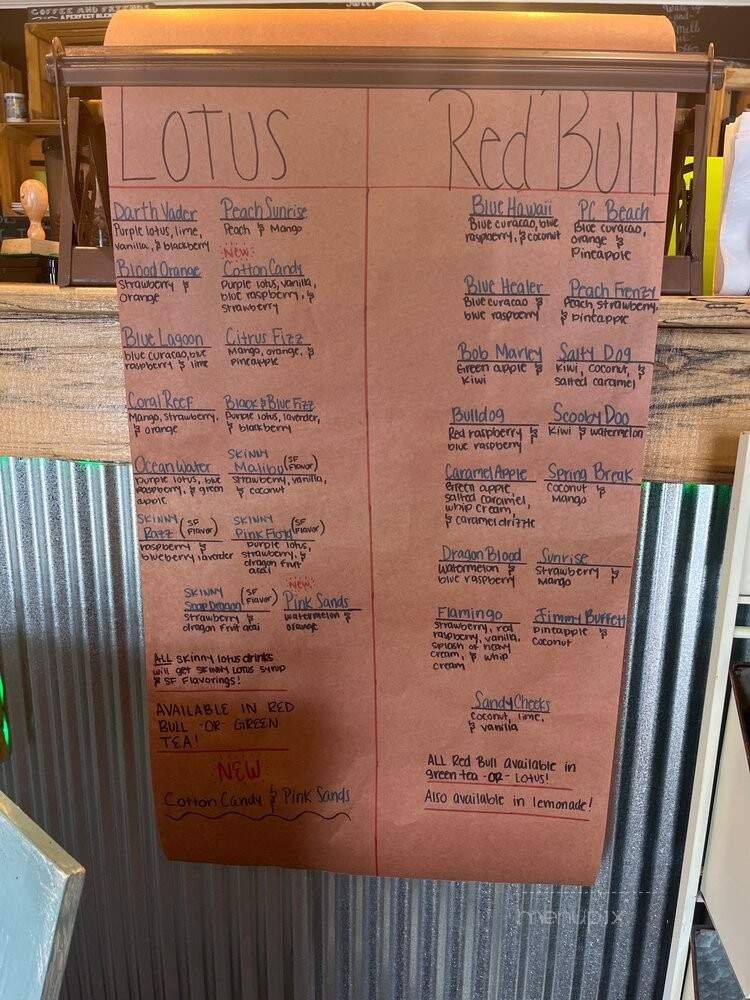 COFFEE AND FRIENDS
A PERFECT BLEND
LOTUS
Darth Vader
Purple lotus, lime,
vanilla, & blackberry
Peach Sunrise
Peach & Mango
Blood Orange
Strawberry &
Orange
New
Cotton Candy
Purple lotus, vanilla,
blue raspberry, &
strawberry
Blue Lagoon
blue curacao, blue
raspberry & lime
Citrus Fizz
Mango, orange, &
pineapple
Coral Reef
Mango, strawberry,
& orange
Black & Blue Fizz
Purple lotus, lavender,
& blackberry
Ocean Water
purple lotus, blue
raspberry, & green
apple
SKINNY
Malibu (SF Flavor)
Strawberry, vanilla,
& coconut
SKINNY
Razz (SF Flavor)
raspberry &
blueberry lavender
SKINNY
Pink Floyd (SF Flavor)
purple lotus,
strawberry, &
dragon fruit
acai
SKINNY
Snap Dragon (SF Flavor)
Strawberry &
dragon fruit acai
New
Pink Sands
watermelon &
orange
ALL skinny lotus drinks
will get SKINNY LOTUS syrup
& SF Flavorings!
AVAILABLE IN RED
BULL -OR- GREEN
TEA!
NEW
Cotton Candy & Pink Sands
Red Bull
Blue Hawaii
Blue curacao, blue
raspberry, & coconut
PC Beach
Blue curacao,
orange &
Pineapple
Blue Healer
Blue curacao &
blue raspberry
Peach Frenzy
Peach, strawberry,
& pineapple
Bob Marley
Green apple &
Kiwi
Salty Dog
Kiwi, coconut, &
salted caramel
Bulldog
Red raspberry &
blue raspberry
Scooby Doo
Kiwi & watermelon
Caramel Apple
Green apple,
salted caramel,
whip cream,
& caramel drizzle
Spring Break
Coconut &
Mango
Dragon Blood
Watermelon &
blue raspberry
Sunrise
Strawberry &
Mango
Flamingo
Strawberry, red
raspberry, vanilla,
splash of heavy
cream, & whip
cream
Jimmy Buffett
pineapple &
Coconut
Sandy Cheeks
Coconut, lime,
& vanilla
ALL Red Bull available in
green tea -OR- LOTUS!
Also available in lemonade!
menupix